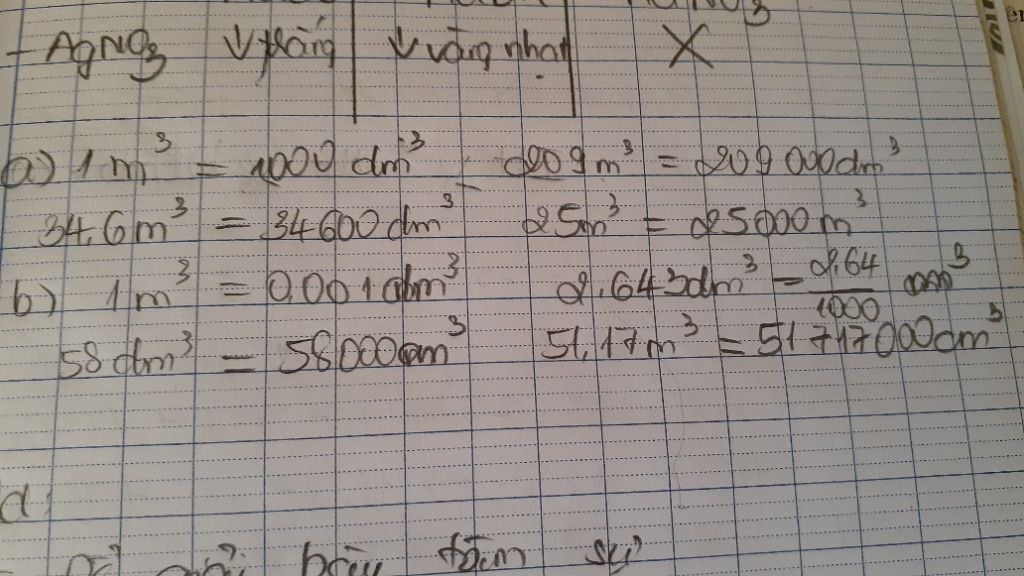 - AgNO3 ↓ trắng ↓ vàng nhạt X
a) 1 m³ = 1000 dm³ 209 m³ = 209 000 dm³
34,6 m³ = 34600 dm³ 25m³ = 25000 m³
b) 1 m³ = 0,001 dm³ 2,643dm³ = 2,64/1000 cm³
58 dm³ = 58000 cm³ 51,17 m³ = 51717000cm³
d
tâm sự